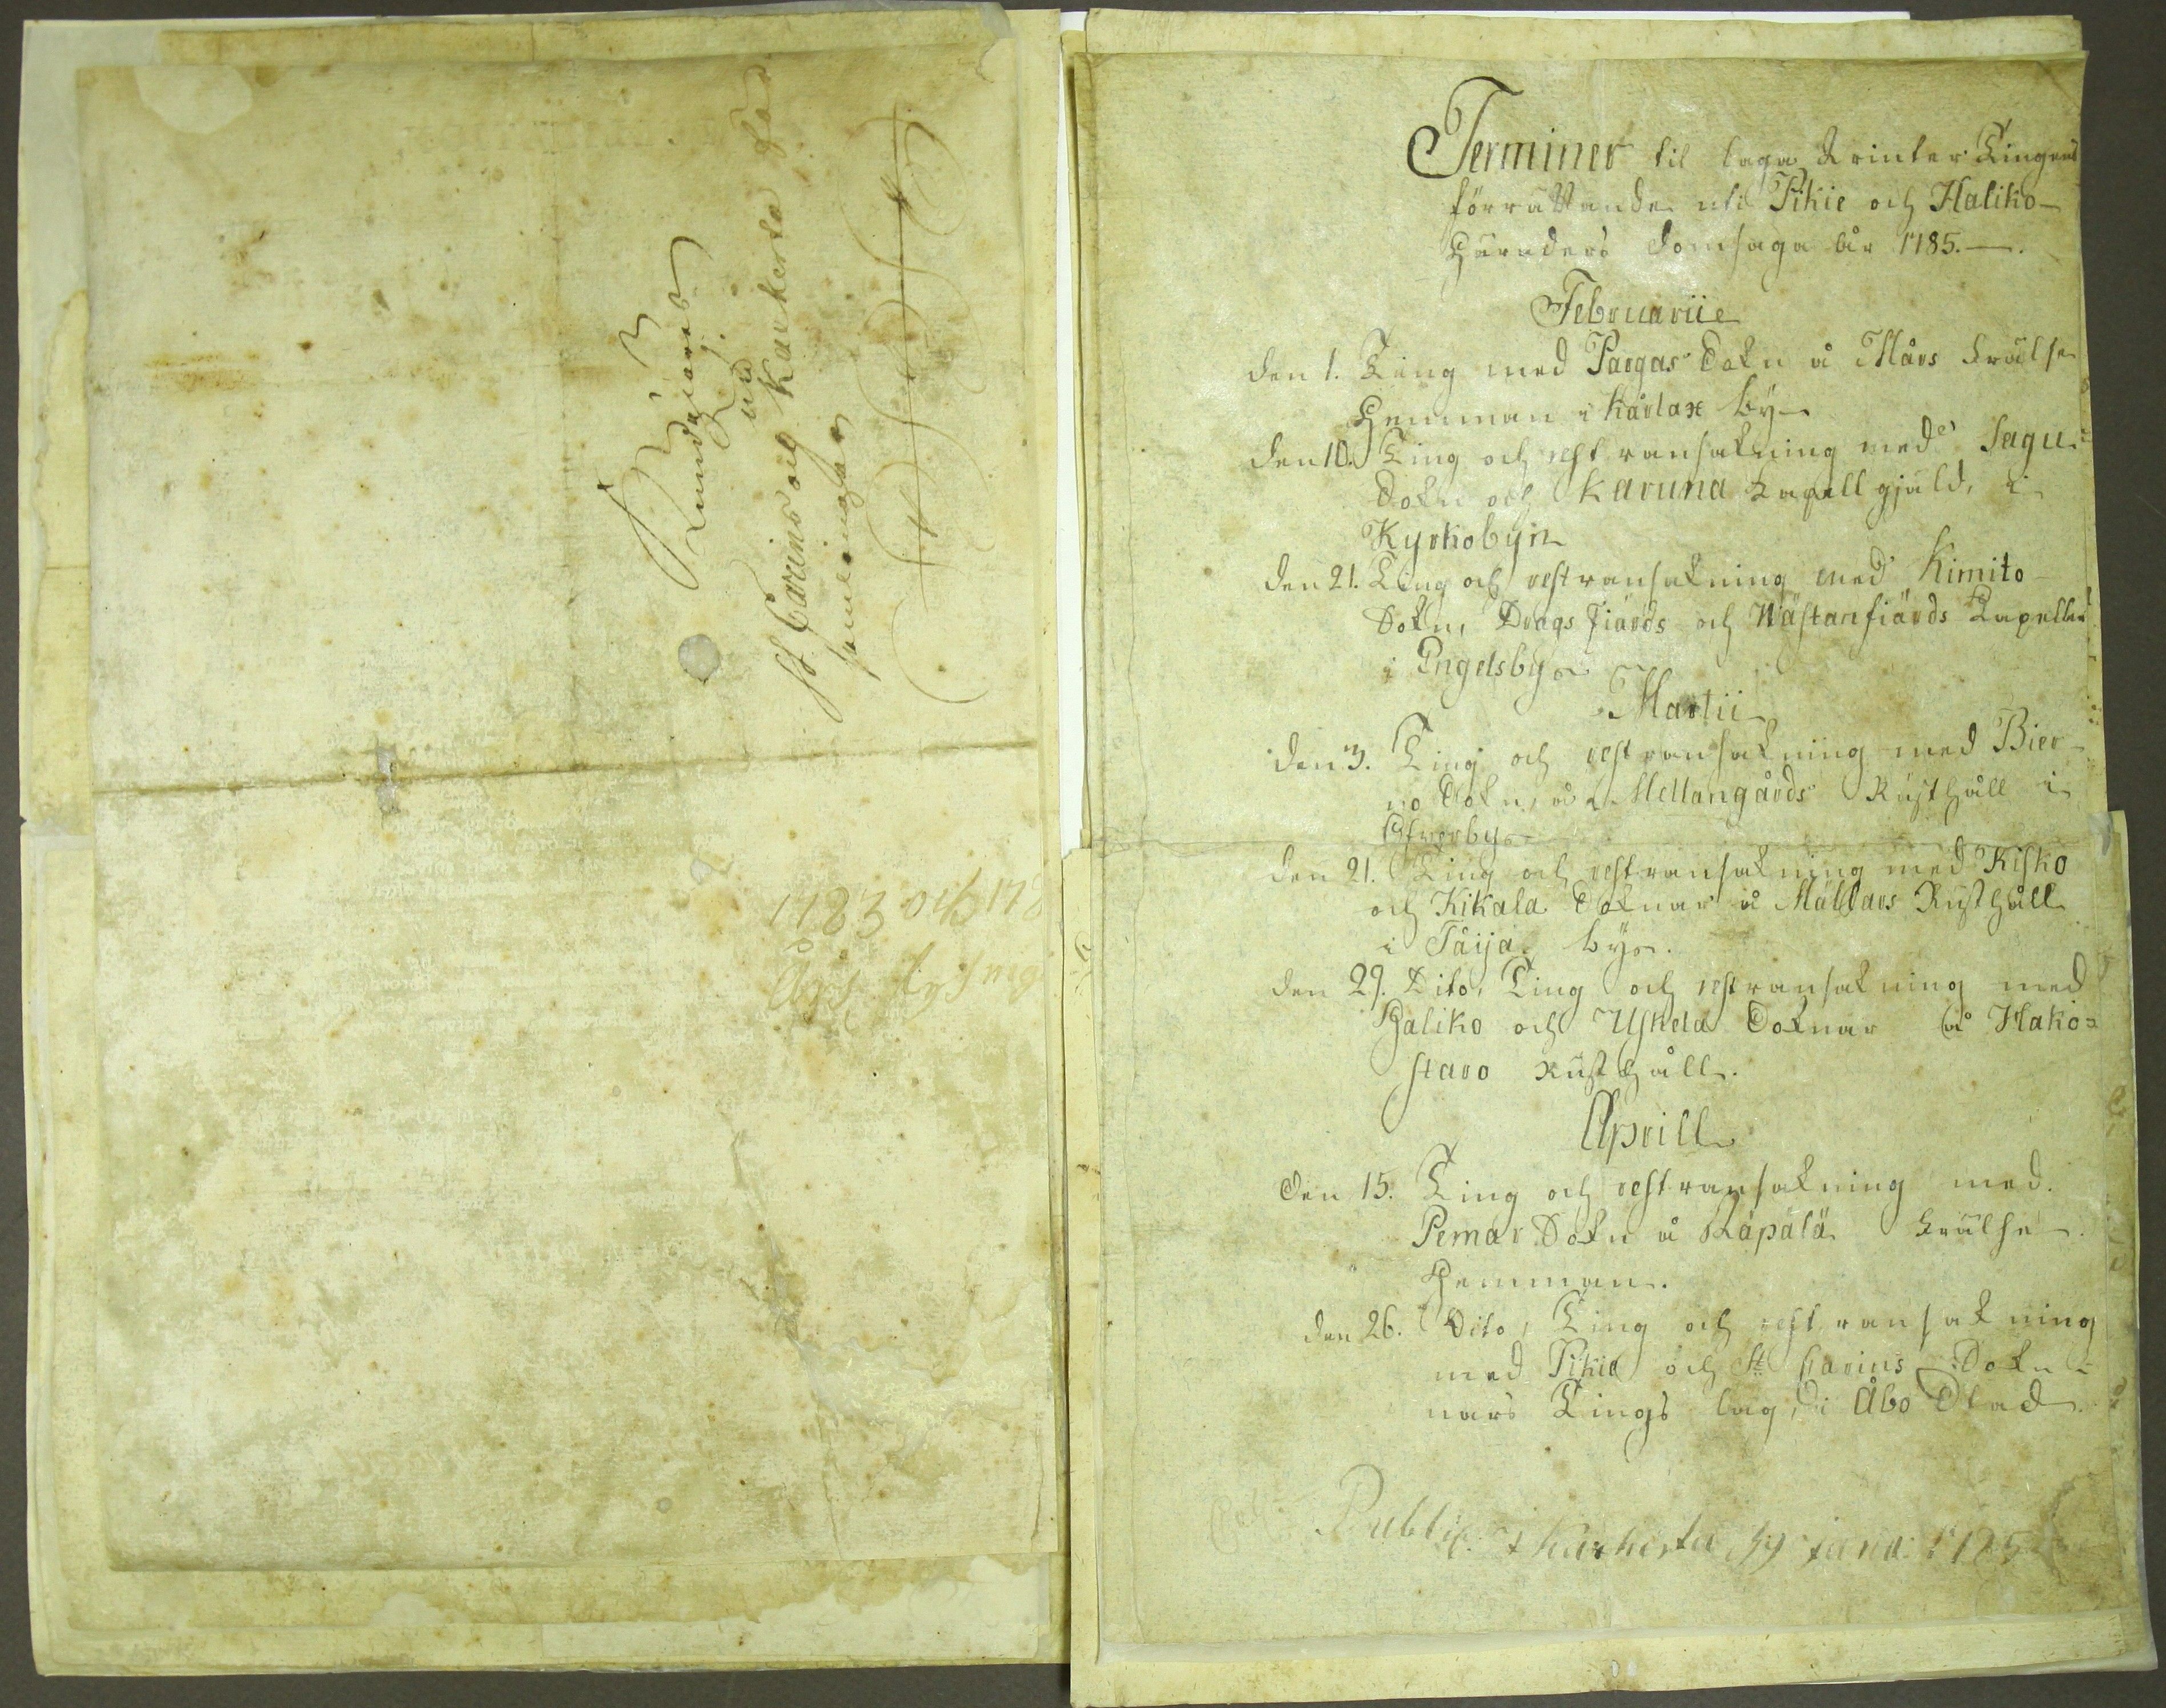 Kundgiöres
uti
St Carins och Karkerta för-
samlingar
1783 och 178
Års lysning
Terminer til laga Winter Tingens
förrättande uti Pikie och Haliko
Häraders Domsaga år 1785.
Februarii
den 1. Ting med Pargas Sokn å Mårs Frälse
Hemman i Kårlax by
den 10. Ting och restransakning med Sagu
Sokn och Karuna Kapell gjäld, i
Kyrkobyn
den 21. Ting och restransakning med Kimito
Sokn, Dragsfiärds och Wästanfiärds Kapeller
i Engelsby
Martii
den 3. Ting och restransakning med Bier-
no Sokn, å Mellangårds Rusthåll i
Öfverby
den 21. Ting och restransakning med Kisko
och Kikala Soknar å Mällars Rusthåll
i Tåija by.
den 29. Dito, Ting och restransakning med
Haliko och Uskela Soknar å Hako=
staro Rusthåll.
Aprill
den 15. Ting och restransakning med
Pemar Sokn å Räpälä Frälse
Hemman.
den 26. Dito, Ting och restransakning
med Pikie och St Karins Sokn-
nars Tings lag, i Åbo Stad.
Public. i Karkerta janu: 1785